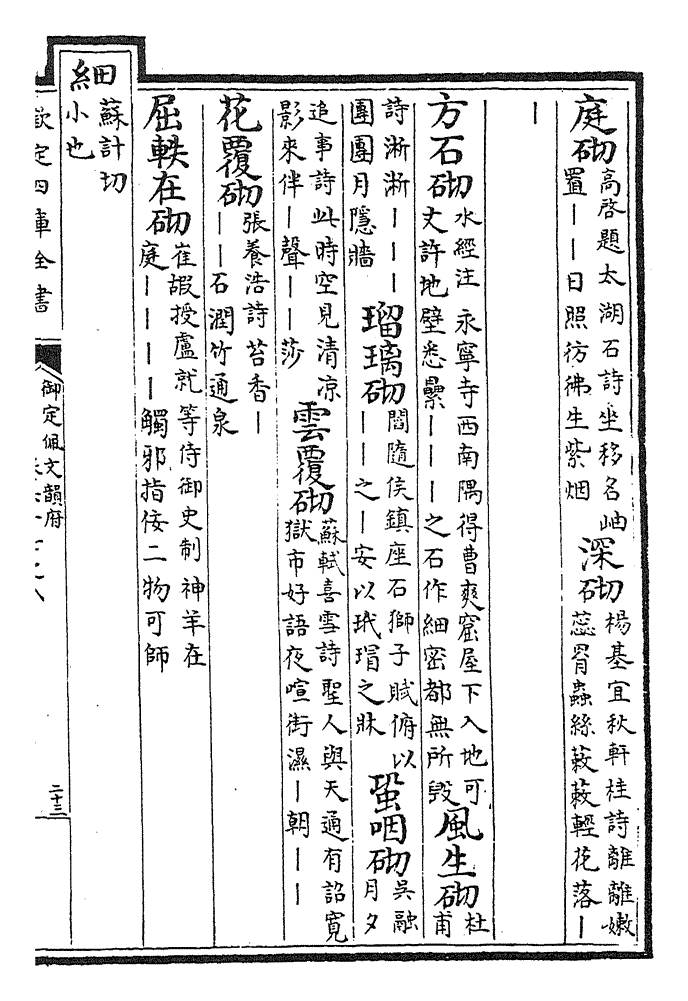 庭砌高啓題太湖石詩坐移名岫置丨丨日照彷彿生紫烟 深砌楊基宜秋軒桂詩離離嫩蕊胥蟲絲蔌蔌輕花落丨
丨
方石砌水經注永寧寺西南隅得曹爽窟屋下入地可丈許地壁悉纍丨丨丨之石作細密都無所毀 風生砌杜甫
詩淅淅丨丨丨團團月隱牆 瑠璃砌閻隨侯鎮座石獅子賦俯以丨丨之丨安以玳瑁之牀 蛩咽砌吳融月夕
追事詩此時空見清凉影來伴丨聲丨丨莎 雲覆砌蘇軾喜雪詩聖人與天通有詔寬獄市好語夜喧街濕丨朝丨丨
花覆砌張養浩詩苔香丨丨丨石潤竹通泉
屈軼在砌崔嘏授盧就等侍御史制神羊在庭丨丨丨丨觸邪指佞二物可師
細蘇計切小也
欽定四庫全書
御定佩文韻府
二十三